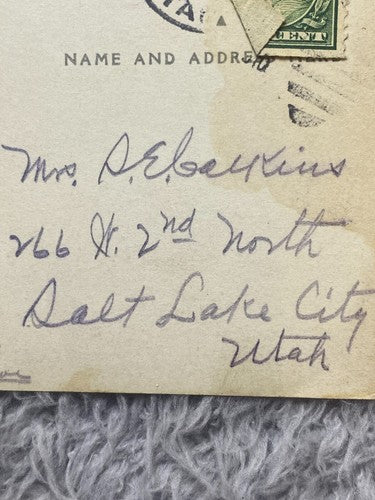 NAME AND ADDRE
CENT
Mrs. S. E. Calkins
266 W. 2nd North
Salt Lake City
Utah